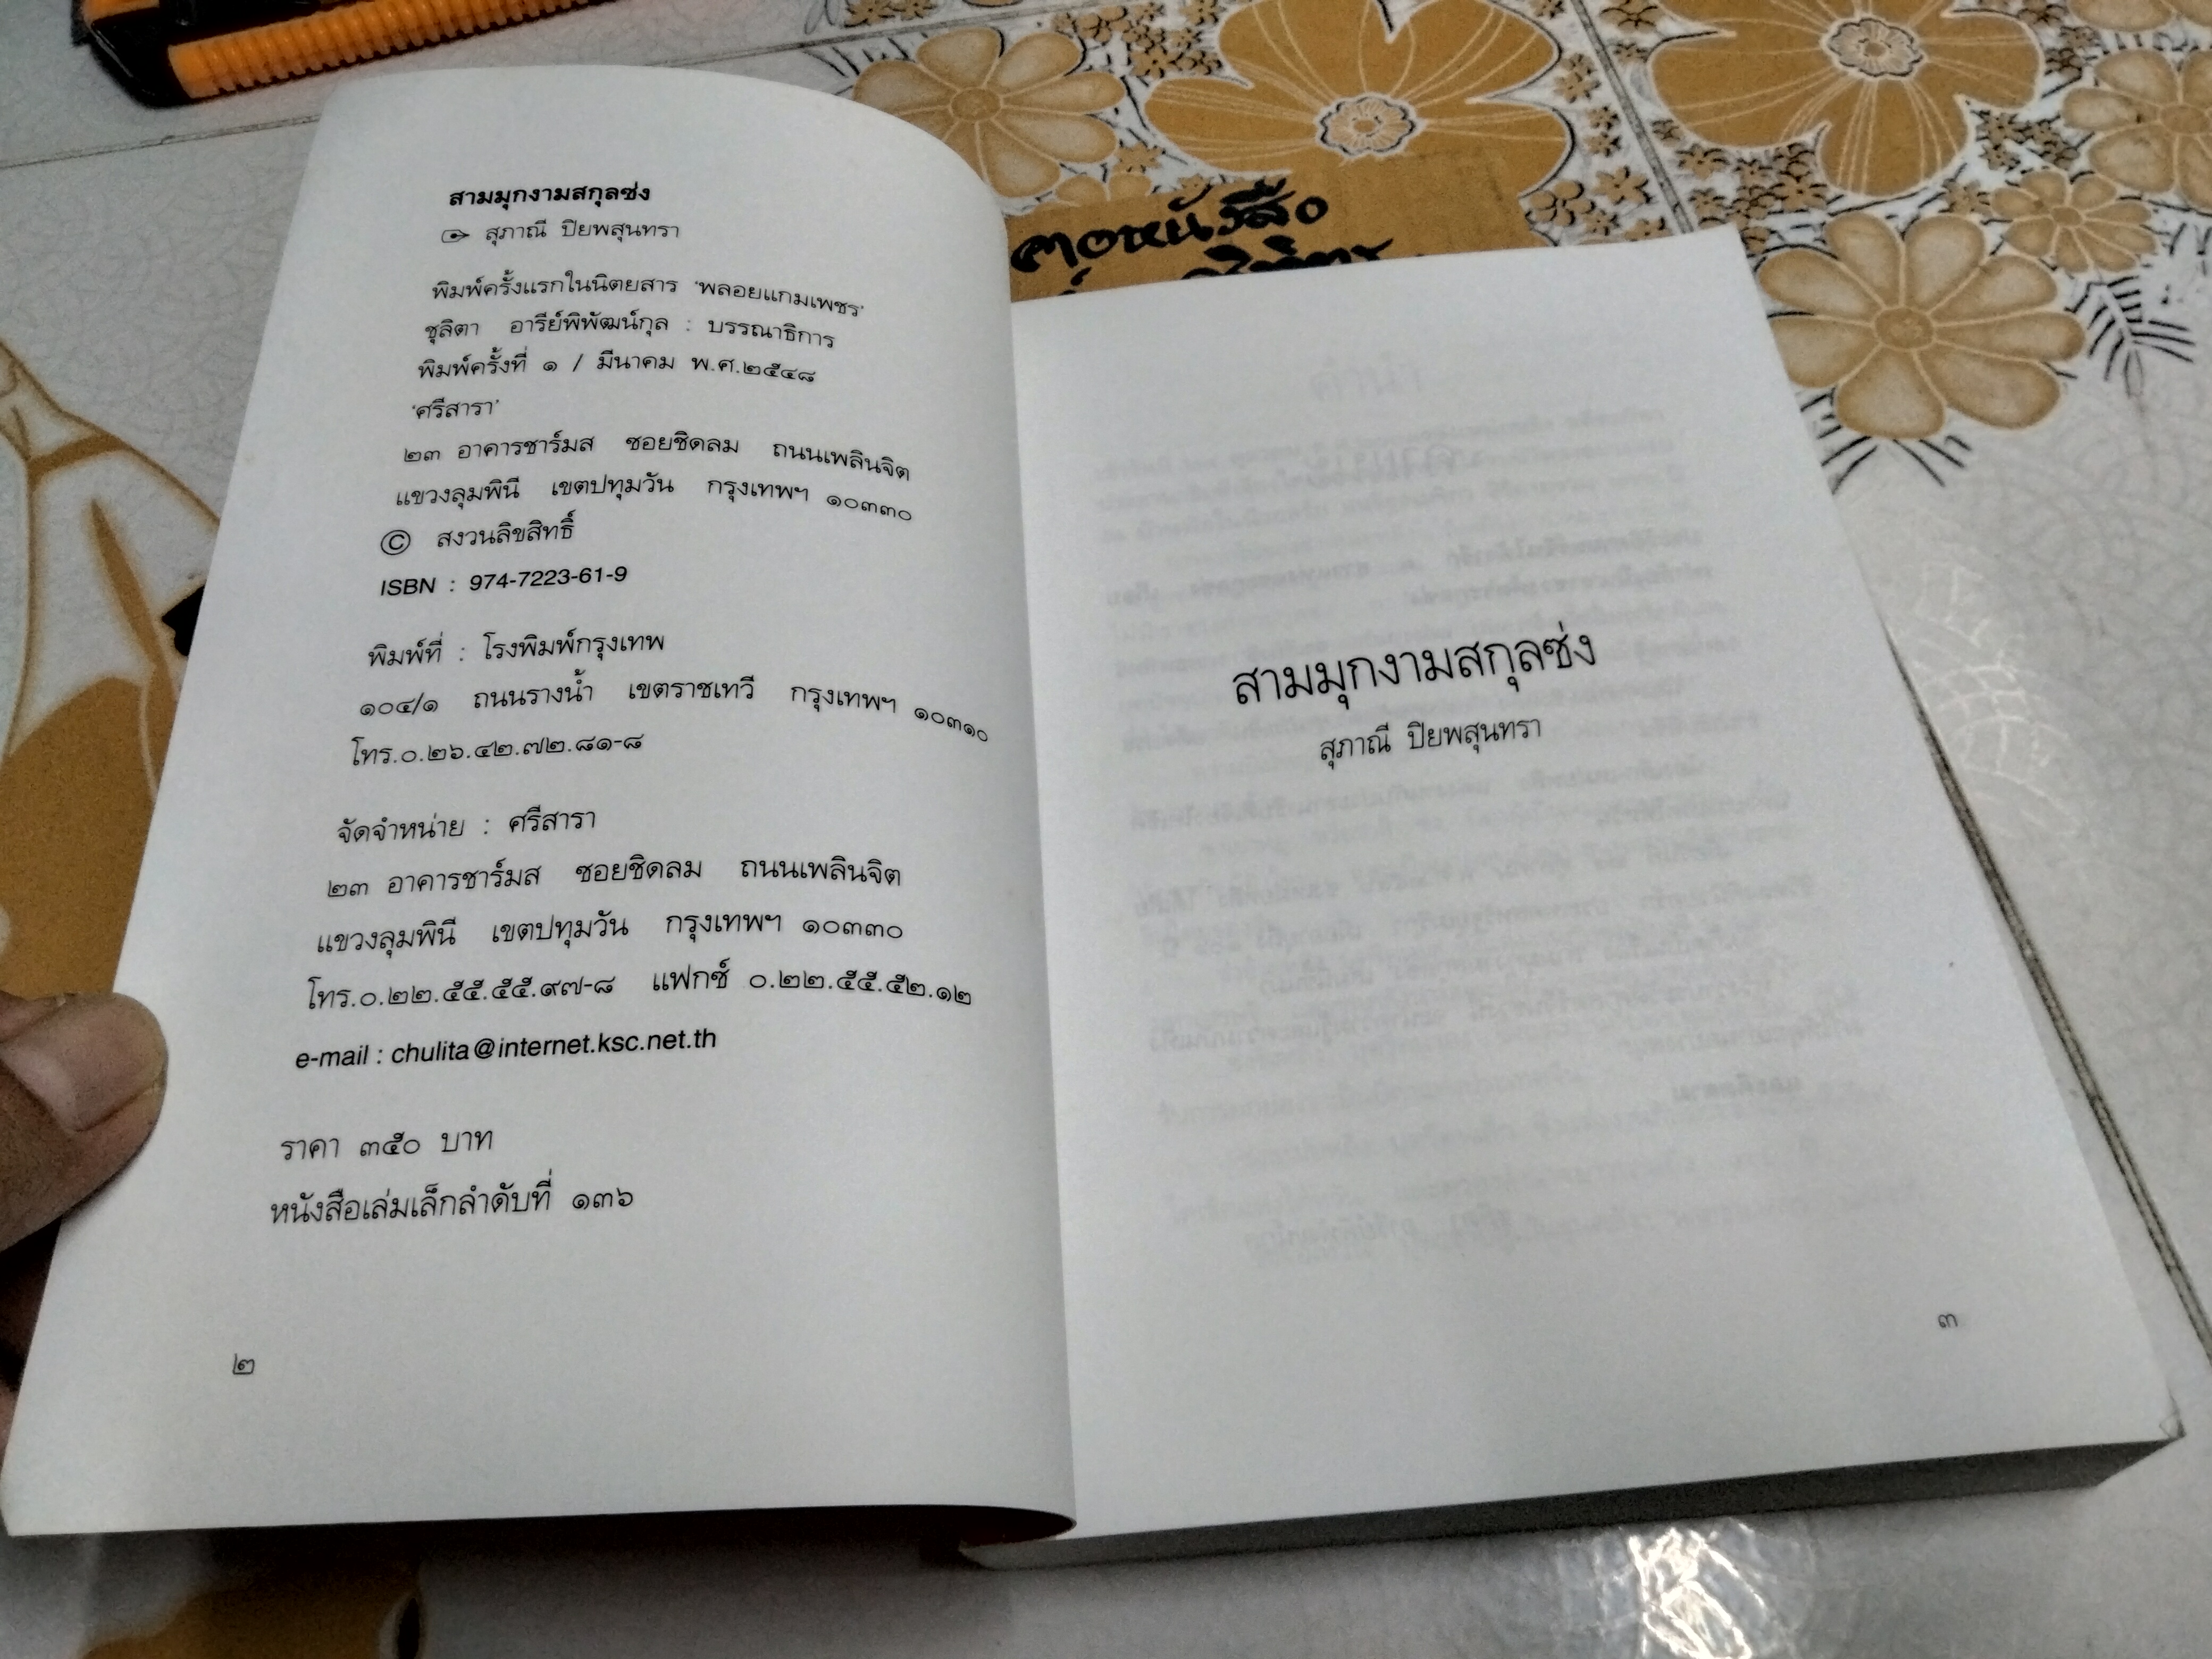 สามมุกงามสกุลซ่ง
สุภาณี ปิยพสุนทรา
พิมพ์ครั้งแรกในนิตยสาร 'พลอยแกมเพชร'
ชุลิตา อารีย์พิพัฒน์กุล : บรรณาธิการ
พิมพ์ครั้งที่ ๑ / มีนาคม พ.ศ.๒๕๔๘
'ศรีสารา'
๒๓ อาคารชาร์มส ซอยชิดลม ถนนเพลินจิต
แขวงลุมพินี เขตปทุมวัน กรุงเทพฯ ๑๐๓๓๐
© สงวนลิขสิทธิ์
ISBN : 974-7223-61-9
พิมพ์ที่ : โรงพิมพ์กรุงเทพ
๑๐๔/๑ ถนนรางน้ำ เขตราชเทวี กรุงเทพฯ ๑๐๓๑๐
โทร.๐.๒๖.๔๒.๗๒.๘๑-๘
จัดจำหน่าย : ศรีสารา
๒๓ อาคารชาร์มส ซอยชิดลม ถนนเพลินจิต
แขวงลุมพินี เขตปทุมวัน กรุงเทพฯ ๑๐๓๓๐
โทร.๐.๒๒.๕๕.๕๕.๙๗-๘ แฟกซ์ ๐.๒๒.๕๕.๕๒.๑๒
e-mail : chulita@internet.ksc.net.th
ราคา ๓๕๐ บาท
หนังสือเล่มเล็กลำดับที่ ๑๓๖
๒
สามมุกงามสกุลซ่ง
สุภาณี ปิยพสุนทรา
๓